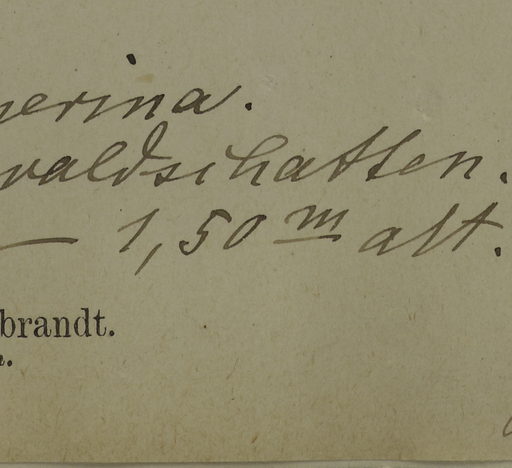 nerina.
waldschatten.
— 1,50 m alt.
brandt.